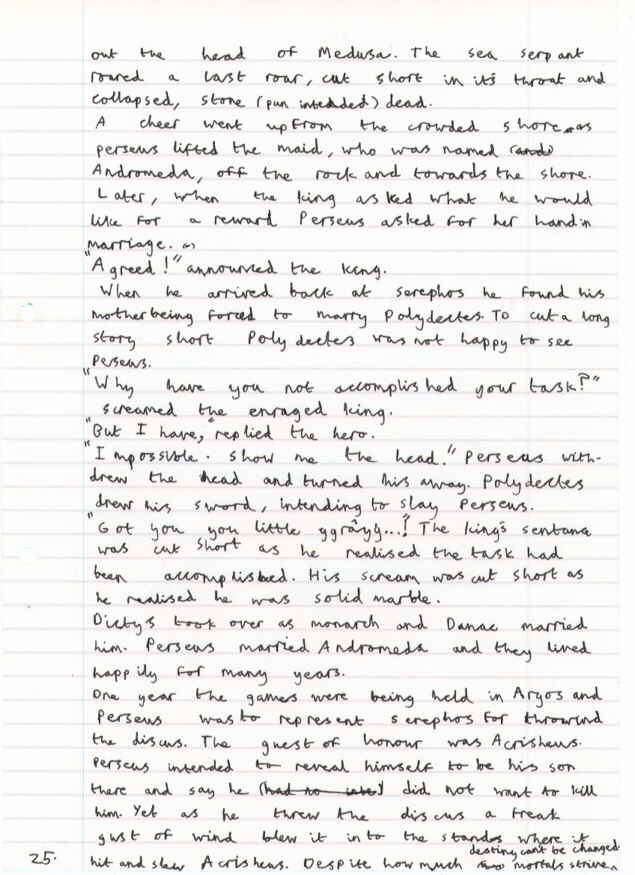 out the head of Medusa. The sea serpant
roared a last roar, cut short in its throat and
collapsed, stone (pun intended) dead.
A cheer went up from the crowded shore as
perseus lifted the maid, who was named
Andromeda, off the rock and towards the shore.
Later, when the king asked what he would
like for a reward Perseus asked for her hand in
marriage.
"Agreed!" announced the king.
When he arrived back at serephos he found his
mother being forced to marry Polydectes. To cut a long
story short Polydectes was not happy to see
Perseus.
"Why have you not accomplished your task?"
screamed the enraged king.
"But I have," replied the hero.
"Impossible. Show me the head." Perseus with-
drew the head and turned his away. Polydectes
drew his sword, intending to slay Perseus.
"Got you you little ggrayg...!" The king's sentance
was cut short as he realised the task had
been accomplished. His scream was cut short as
he realised he was solid marble.
Dictys took over as monarch and Danae married
him. Perseus married Andromeda and they lived
happily for many years.
One year the games were being held in Argos and
Perseus was to represent serephos for throwind
the discus. The guest of honour was Acrisheus.
Perseus intended to reveal himself to be his son
there and say he (had no inte) did not want to kill
him. Yet as he threw the discus a freak
gust of wind blew it in to the stands where it
hit and slew Acrisheus. Despite how much mortals strive, destiny cant be changed
25.